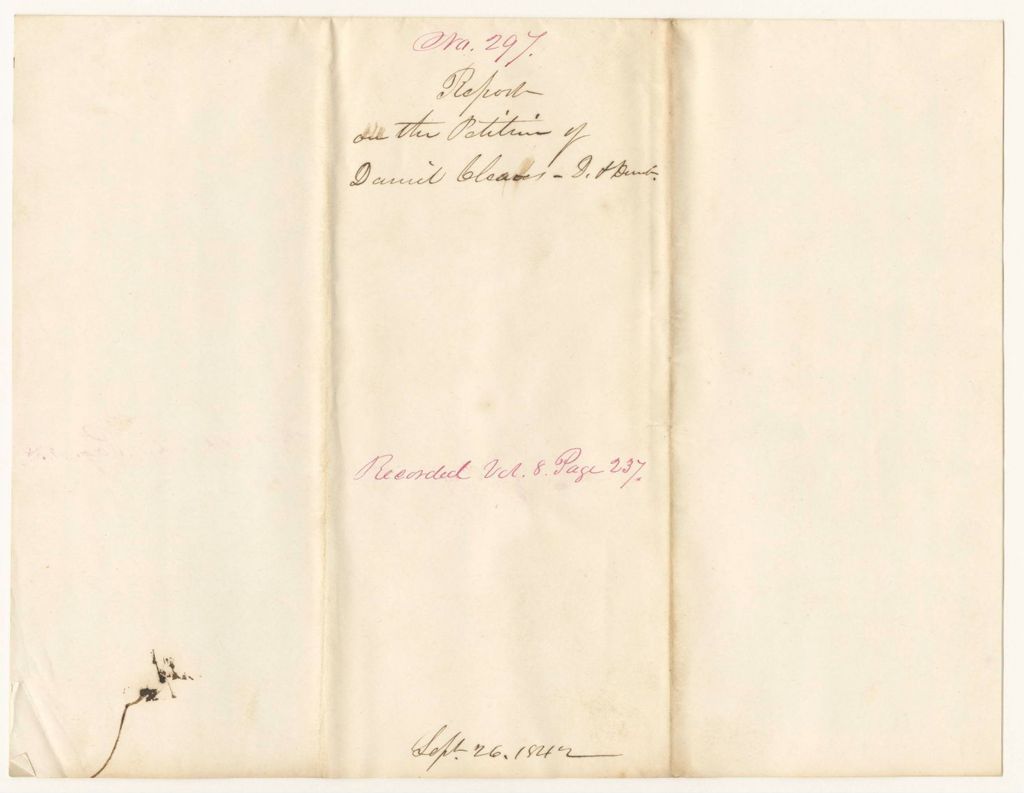 No. 297.
Report
on the Petition of
Daniel Cleaves - D. & Dumb.
Recorded Vol. 8. Page 237.
Sept. 26. 1842